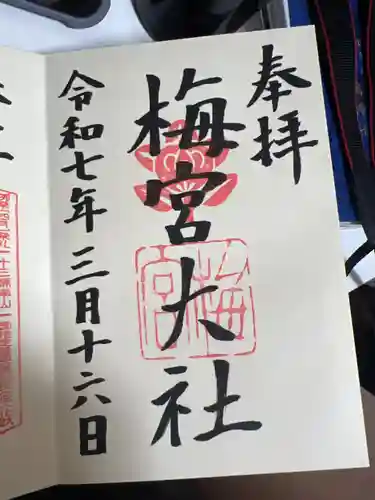 奉拝
梅宮大社
梅宮
令和七年三月十六日